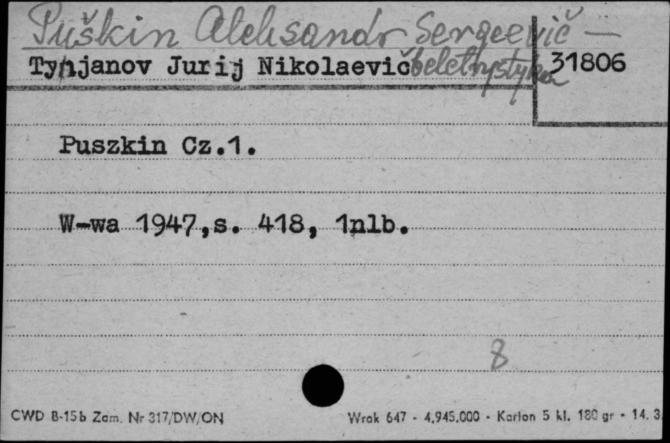 Puškin Aleksandr Sergeevič —
beletrystyka
Tynjanov Jurij Nikolaevič
31806
Puszkin Cz.1.
W-wa 1947,s. 418, 1nlb.
8
CWD B-15b Zam. Nr 317/DW/ON
Wrak 647 - 4.945.000 - Karton 5 kl. 180 gr - 14. 3